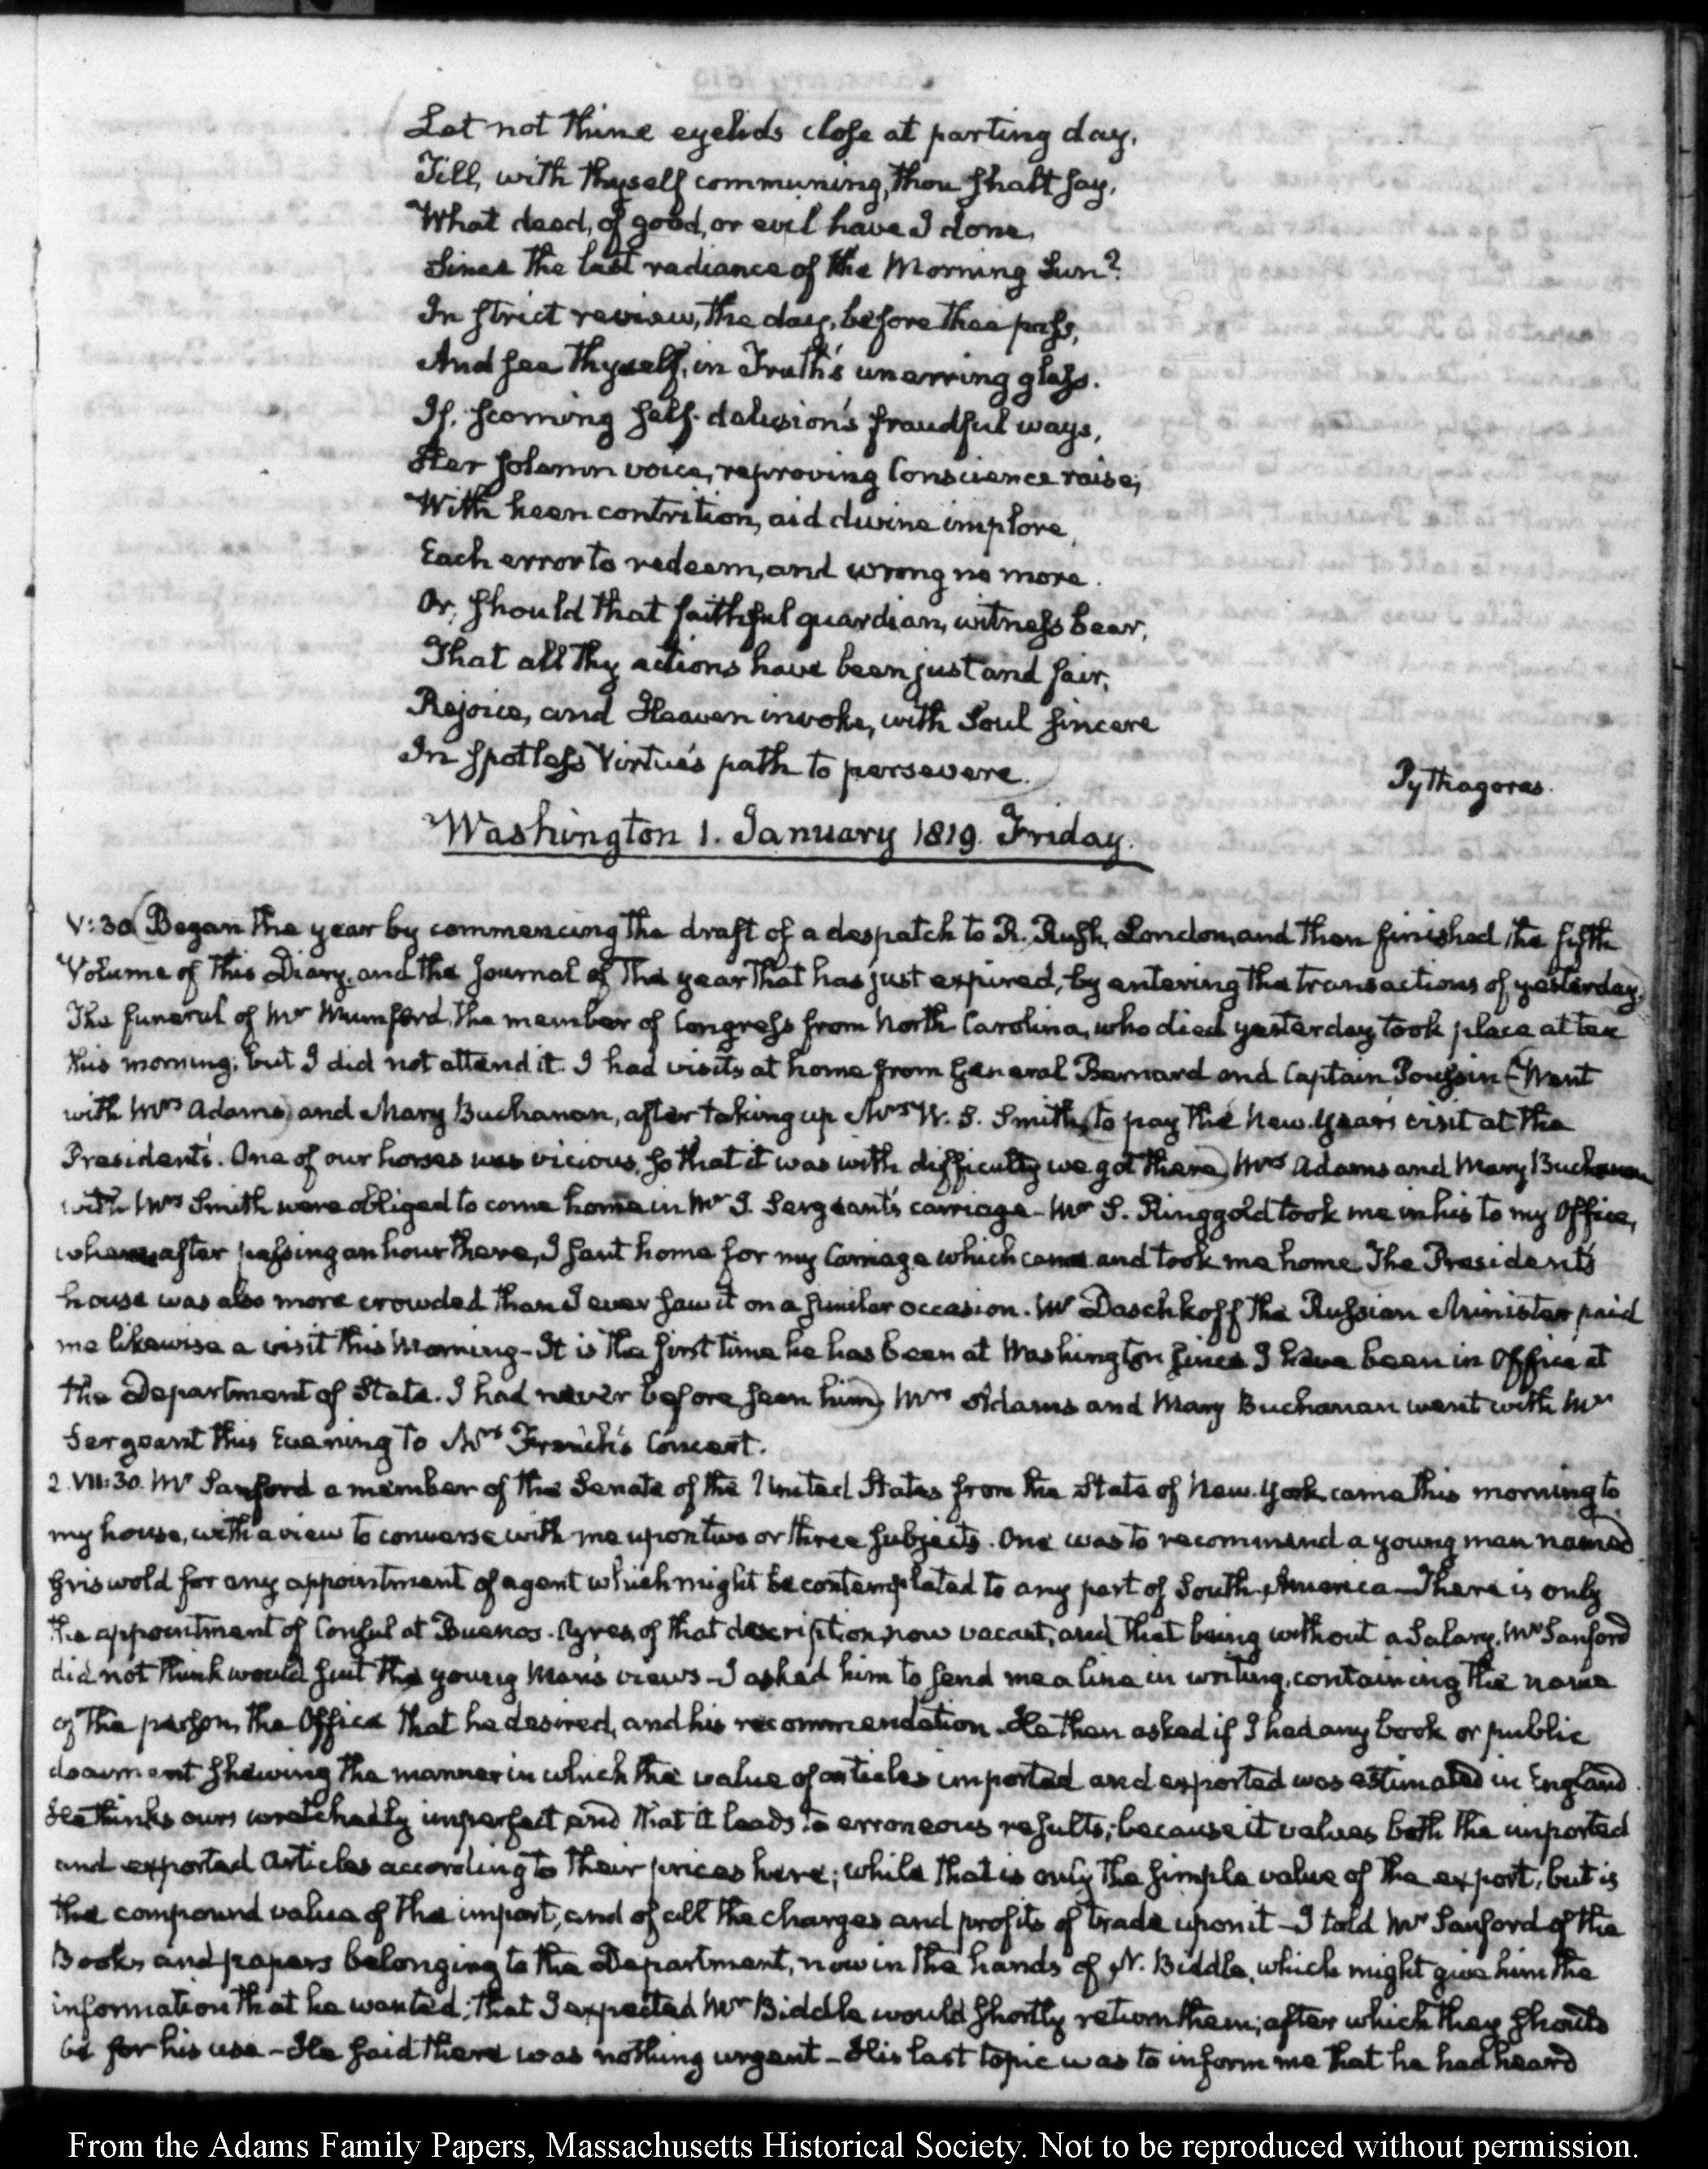 Let not thine eyelids close at parting day,
Till, with thyself communing, thou shalt say,
What deed, of good, or evil have I done,
Since the last radiance of the Morning Sun?
In strict review, the day, before thee pass,
And see thyself, in Truth's unerring glass.
If, scorning self-delusion's fraudful ways,
Her solemn voice, reproving Conscience raise;
With keen contrition, aid divine implore,
Each error to redeem, and wrong no more.
Or, should that faithful guardian, witness bear,
That all thy actions have been just and fair,
Rejoice, and Heaven invoke, with Soul sincere
In spotless Virtue's path to persevere.
Pythagoras.
Washington 1. January 1819. Friday.
V:30. Began the year by commencing the draft of a despatch to R. Rush, London, and then finished the fifth
Volume of this Diary, and the Journal of the year that has just expired, by entering the transactions of yesterday.
The funeral of Mr Mumford, the member of Congress from North Carolina, who died yesterday, took place at ten
this morning; but I did not attend it. I had visits at home from General Bernard and Captain Poussin. Went
with Mrs Adams, and Mary Buchanan, after taking up Mrs W. S. Smith, to pay the New-Year's visit at the
President's. One of our horses was vicious, so that it was with difficulty we got there. Mrs Adams and Mary Buchanan
with Mrs Smith were obliged to come home in Mr J. Sergeant's carriage - Mr S. Ringgold took me in his to my Office,
where after passing an hour there, I sent home for my Carriage which came and took me home. The President's
house was also more crowded than I ever saw it on a similar occasion. Mr Daschkoff the Russian Minister paid
me likewise a visit this Morning - It is the first time he has been at Washington since I have been in Office at
the Department of State. I had never before seen him. Mrs Adams and Mary Buchanan went with Mrs
Sergeant this Evening to Mrs French's Concert.
2. VII:30. Mr Sanford a member of the Senate of the United States from the State of New-York came this morning to
my house, with a view to converse with me upon two or three subjects. One was to recommend a young man named
Griswold for any appointment of agent which might be contemplated to any part of South-America - There is only
the appointment of Consul at Buenos-Ayres, of that description, now vacant, and that being without a Salary, Mr Sanford
did not think would suit the young Man's views - I asked him to send me a line in writing, containing the name
of the person, the Office that he desired, and his recommendation - He then asked if I had any book or public
document shewing the manner in which the value of articles imported and exported was estimated in England.
He thinks ours wretchedly imperfect and that it leads to erroneous results; because it values both the imported
and exported articles according to their prices here; while that is only the simple value of the export, but is
the compound value of the import, and of all the charges and profits of trade upon it - I told Mr Sanford of the
Books and papers belonging to the Department, now in the hands of N. Biddle, which might give him the
information that he wanted; that I expected Mr Biddle would shortly return them; after which they should
be for his use - He said there was nothing urgent - His last topic was to inform me that he had heard
From the Adams Family Papers, Massachusetts Historical Society. Not to be reproduced without permission.